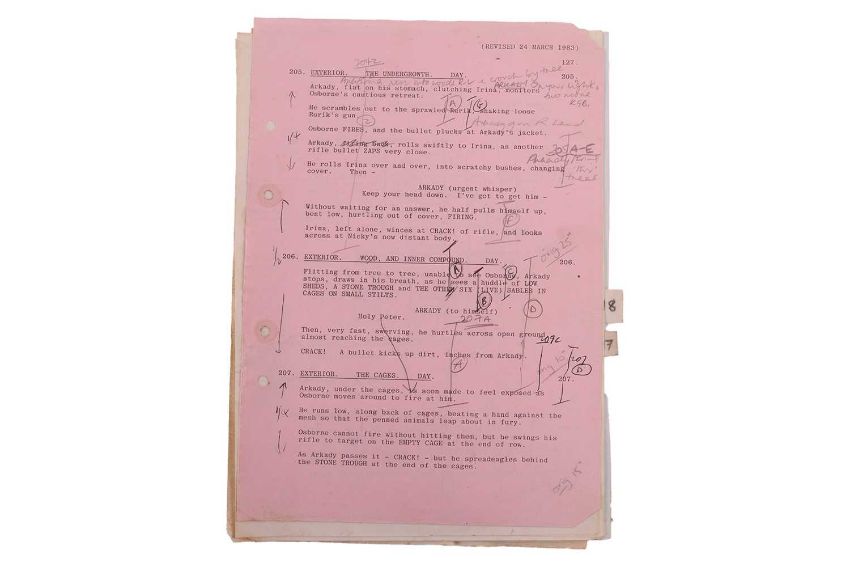 (REVISED 24 MARCH 1983)
127.
205. EXTERIOR. THE UNDERGROWTH. DAY. 205.
Arkady, flat on his stomach, clutching Irina, monitors
Osborne's cautious retreat.
He scrambles out to the sprawled Rurik, shaking loose
Rurik's gun.
Osborne FIRES, and the bullet plucks at Arkady's jacket.
Arkady, rolls swiftly to Irina, as another
rifle bullet ZAPS very close.
205 A-E
He rolls Irina over and over, into scratchy bushes, changing
cover. Then -
ARKADY (urgent whisper)
Keep your head down. I've got to get him -
Without waiting for an answer, he half pulls himself up,
bent low, hurtling out of cover, FIRING.
Irina, left alone, winces at CRACK! of rifle, and looks
across at Nicky's now distant body.
orig 25"
206. EXTERIOR. WOOD, AND INNER COMPOUND. DAY. 206.
Flitting from tree to tree, unable to see Osborne, Arkady
stops, draws in his breath, as he sees a huddle of LOW
SHEDS, A STONE TROUGH and THE OTHER SIX (LIVE) SABLES IN
CAGES ON SMALL STILTS.
A
B
D
ARKADY (to himself)
Holy Peter.
207A
Then, very fast, swerving, he hurtles across open ground,
almost reaching the cages.
207C
CRACK! A bullet kicks up dirt, inches from Arkady.
A
207
D
207. EXTERIOR. THE CAGES. DAY. 207.
Arkady, under the cages, is soon made to feel exposed as
Osborne moves around to fire at him.
He runs low, along back of cages, beating a hand against the
mesh so that the penned animals leap about in fury.
Osborne cannot fire without hitting them, but he swings his
rifle to target on the EMPTY CAGE at the end of row.
As Arkady passes it - CRACK! - but he spreadeagles behind
the STONE TROUGH at the end of the cages.
orig 15"
18
7